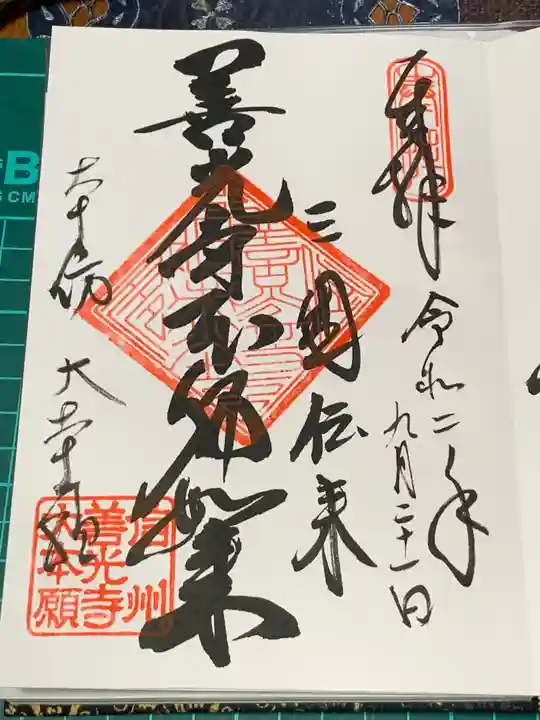 奉拝
令和二年
九月二十一日
三國伝来
善光寺本師如来
本坊 大本願
信州
善光寺
大本願
B
CM